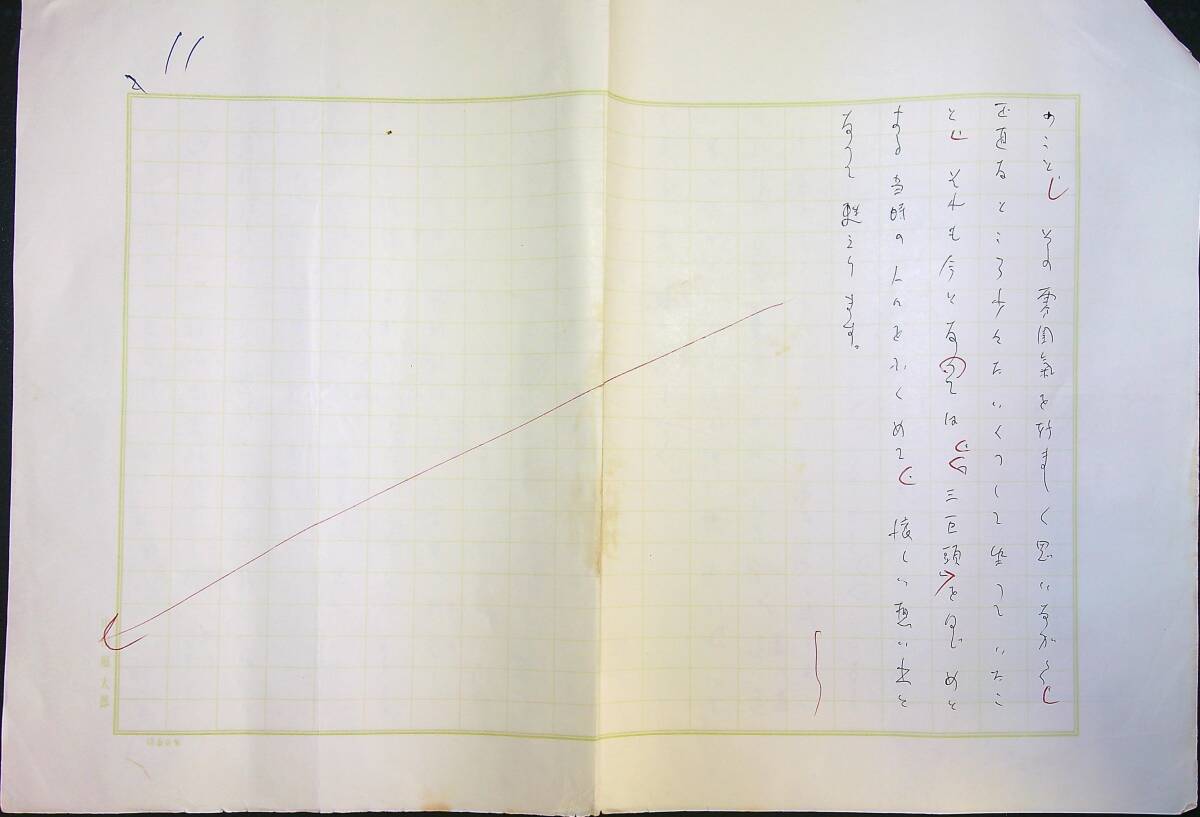 のこと、その雰囲氣を好ましく思いながら、
正直なところ少々たいくつして坐っていたこ
と、それも今となっては、三巨頭をはじめと
する当時の人々をふくめて、懐しい想い出と
なって甦えります。
11